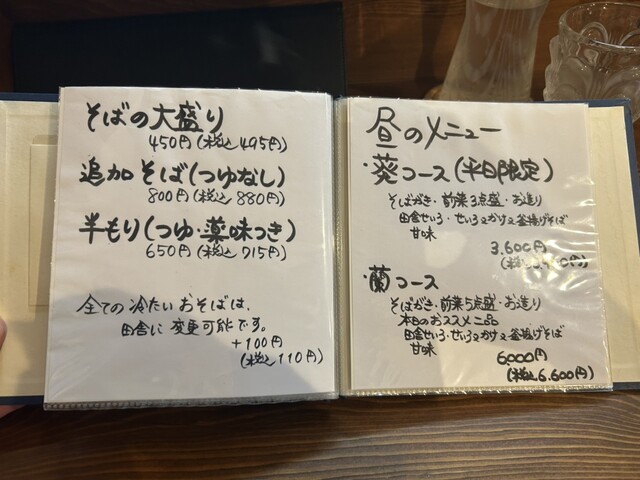 そばの大盛り
450円(税込495円)
追加そば(つゆなし)
800円(税込880円)
半もり(つゆ・薬味つき)
650円(税込715円)
全ての冷たいおそばは、
田舎に変更可能です。
+100円
(税込110円)
昼のメニュー
・葵コース(平日限定)
そばがき・前菜3点盛・お造り
田舎せいろ・せいろ又かけ又釜揚げそば
甘味
3,600円
・蘭コース
そばがき・前菜5点盛・お造り
本日のおススメ二品
田舎せいろ・せいろ又かけ又釜揚げそば
甘味
6000円
(税込6,600円)